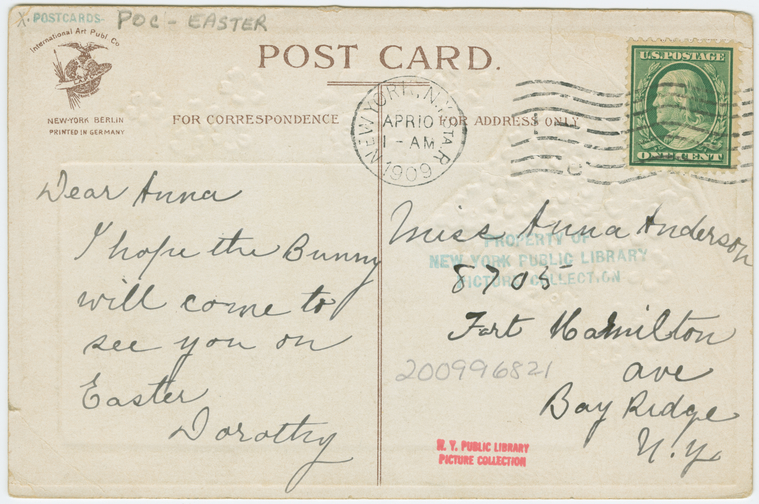 X. POSTCARDS- POC - EASTER
International Art Publ. Co
NEW-YORK BERLIN
PRINTED IN GERMANY
POST CARD.
FOR CORRESPONDENCE
FOR ADDRESS ONLY
NEW YORK, N.Y.
STA. R.
APR 10
1 - AM
1909
U.S. POSTAGE
ONE CENT
Dear Anna
I hope the Bunny
will come to
see you on
Easter
Dorothy
Miss Anna Anderson
8705
Fort Hamilton
ave
Bay Ridge
N.Y.
PROPERTY OF
NEW YORK PUBLIC LIBRARY
PICTURE COLLECTION
200996821
N. Y. PUBLIC LIBRARY
PICTURE COLLECTION